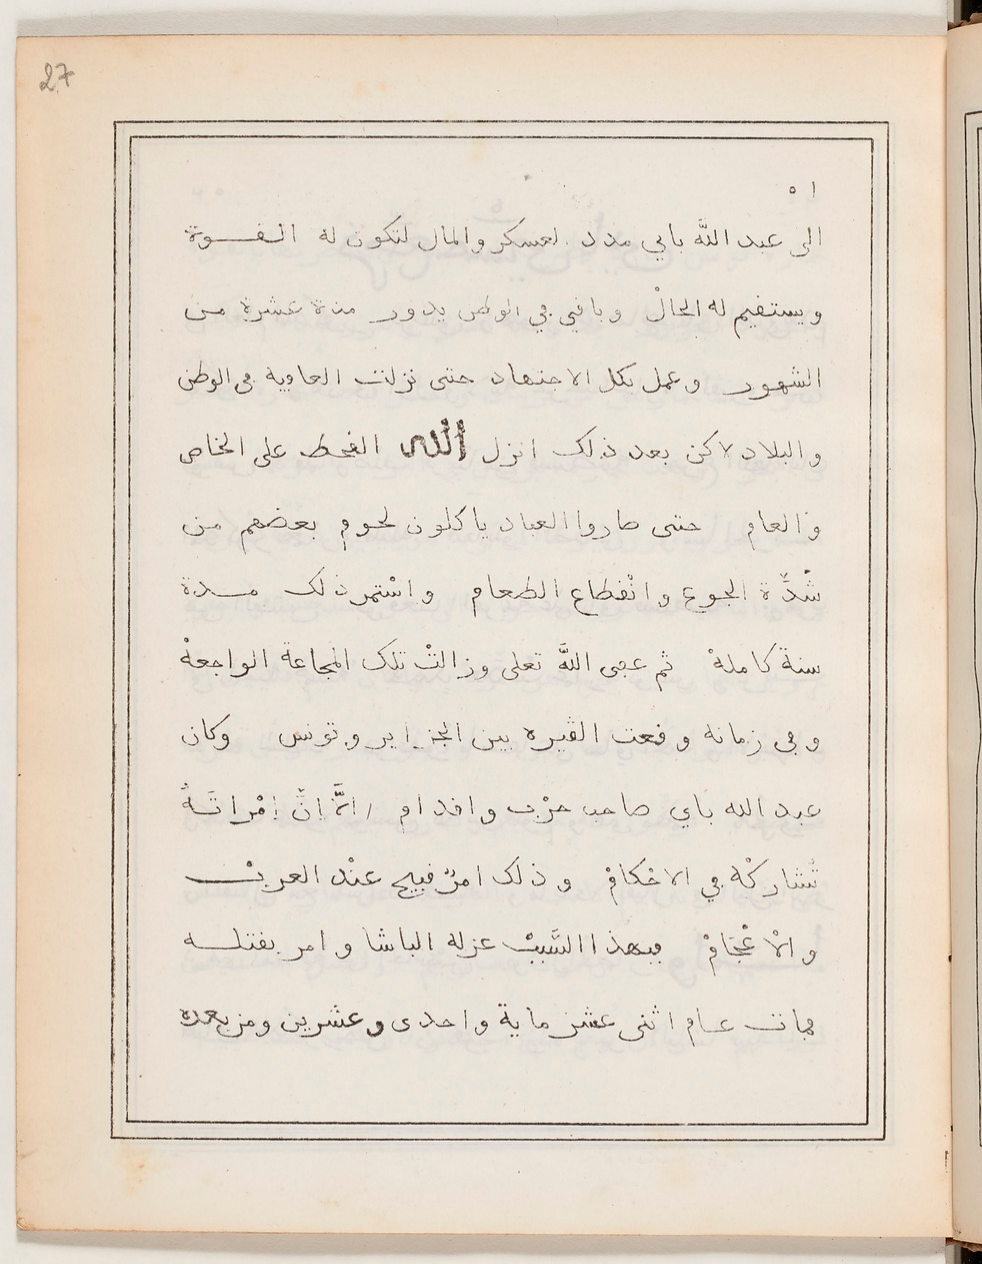 27
٥١
الى عبد اللّه باي مدد لعسكر والمال لتكون له القوة
ويستقيم له الحالْ وباقي في الوطن يدور مدة عشرة من
الشهور وعمل بكل الاجتهاد حتى نزلت العافية في الوطن
والبلاد لاكن بعد ذلك انزل اللّه القحط على الخاص
والعام حتى صاروا العباد ياكلون لحوم بعضهم من
شْدِّة الجوع وانْقطاع الطعام واسْتمر ذلك مدة
سنة كاملةْ ثم عفى اللّه تعلى وزالتْ تلك المجاعة الواجعةْ
وفي زمانه وقعت القيرة بين الجزاير وتونس وكان
عبد الله باي صاحب حرْب واقدام الاَّ انَّ إمْراتَهُ
تُشاركُه في الاحْكامْ وذلك امرٌ قبيح عنْد العربْ
والاعْجَامْ فبهذا السَّببْ عزله الباشا وامر بقتله
فمات عام اثنى عشر ماية واحدى وعشرين ومن بعده